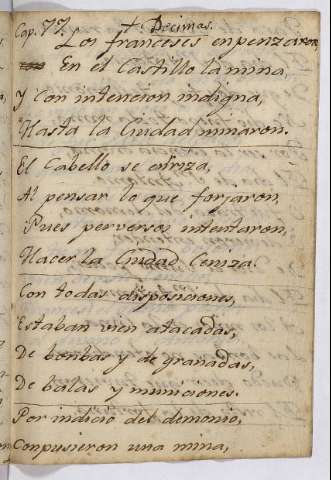 Cap. 77. + Decimas.
Los franceses enpenzaron
En el Castillo la mina,
Y Con intencion indigna,
Hasta la Ciudad minaron.
El Cabello se enriza,
Al pensar lo que forjaron,
Pues perversos intentaron,
Hacer la Ciudad Ceniza.
Con todas disposiciones,
Estaban vien atacadas,
De bonbas y de granadas,
De balas y municiones.
Por indicio del demonio,
Conpusieron una mina,